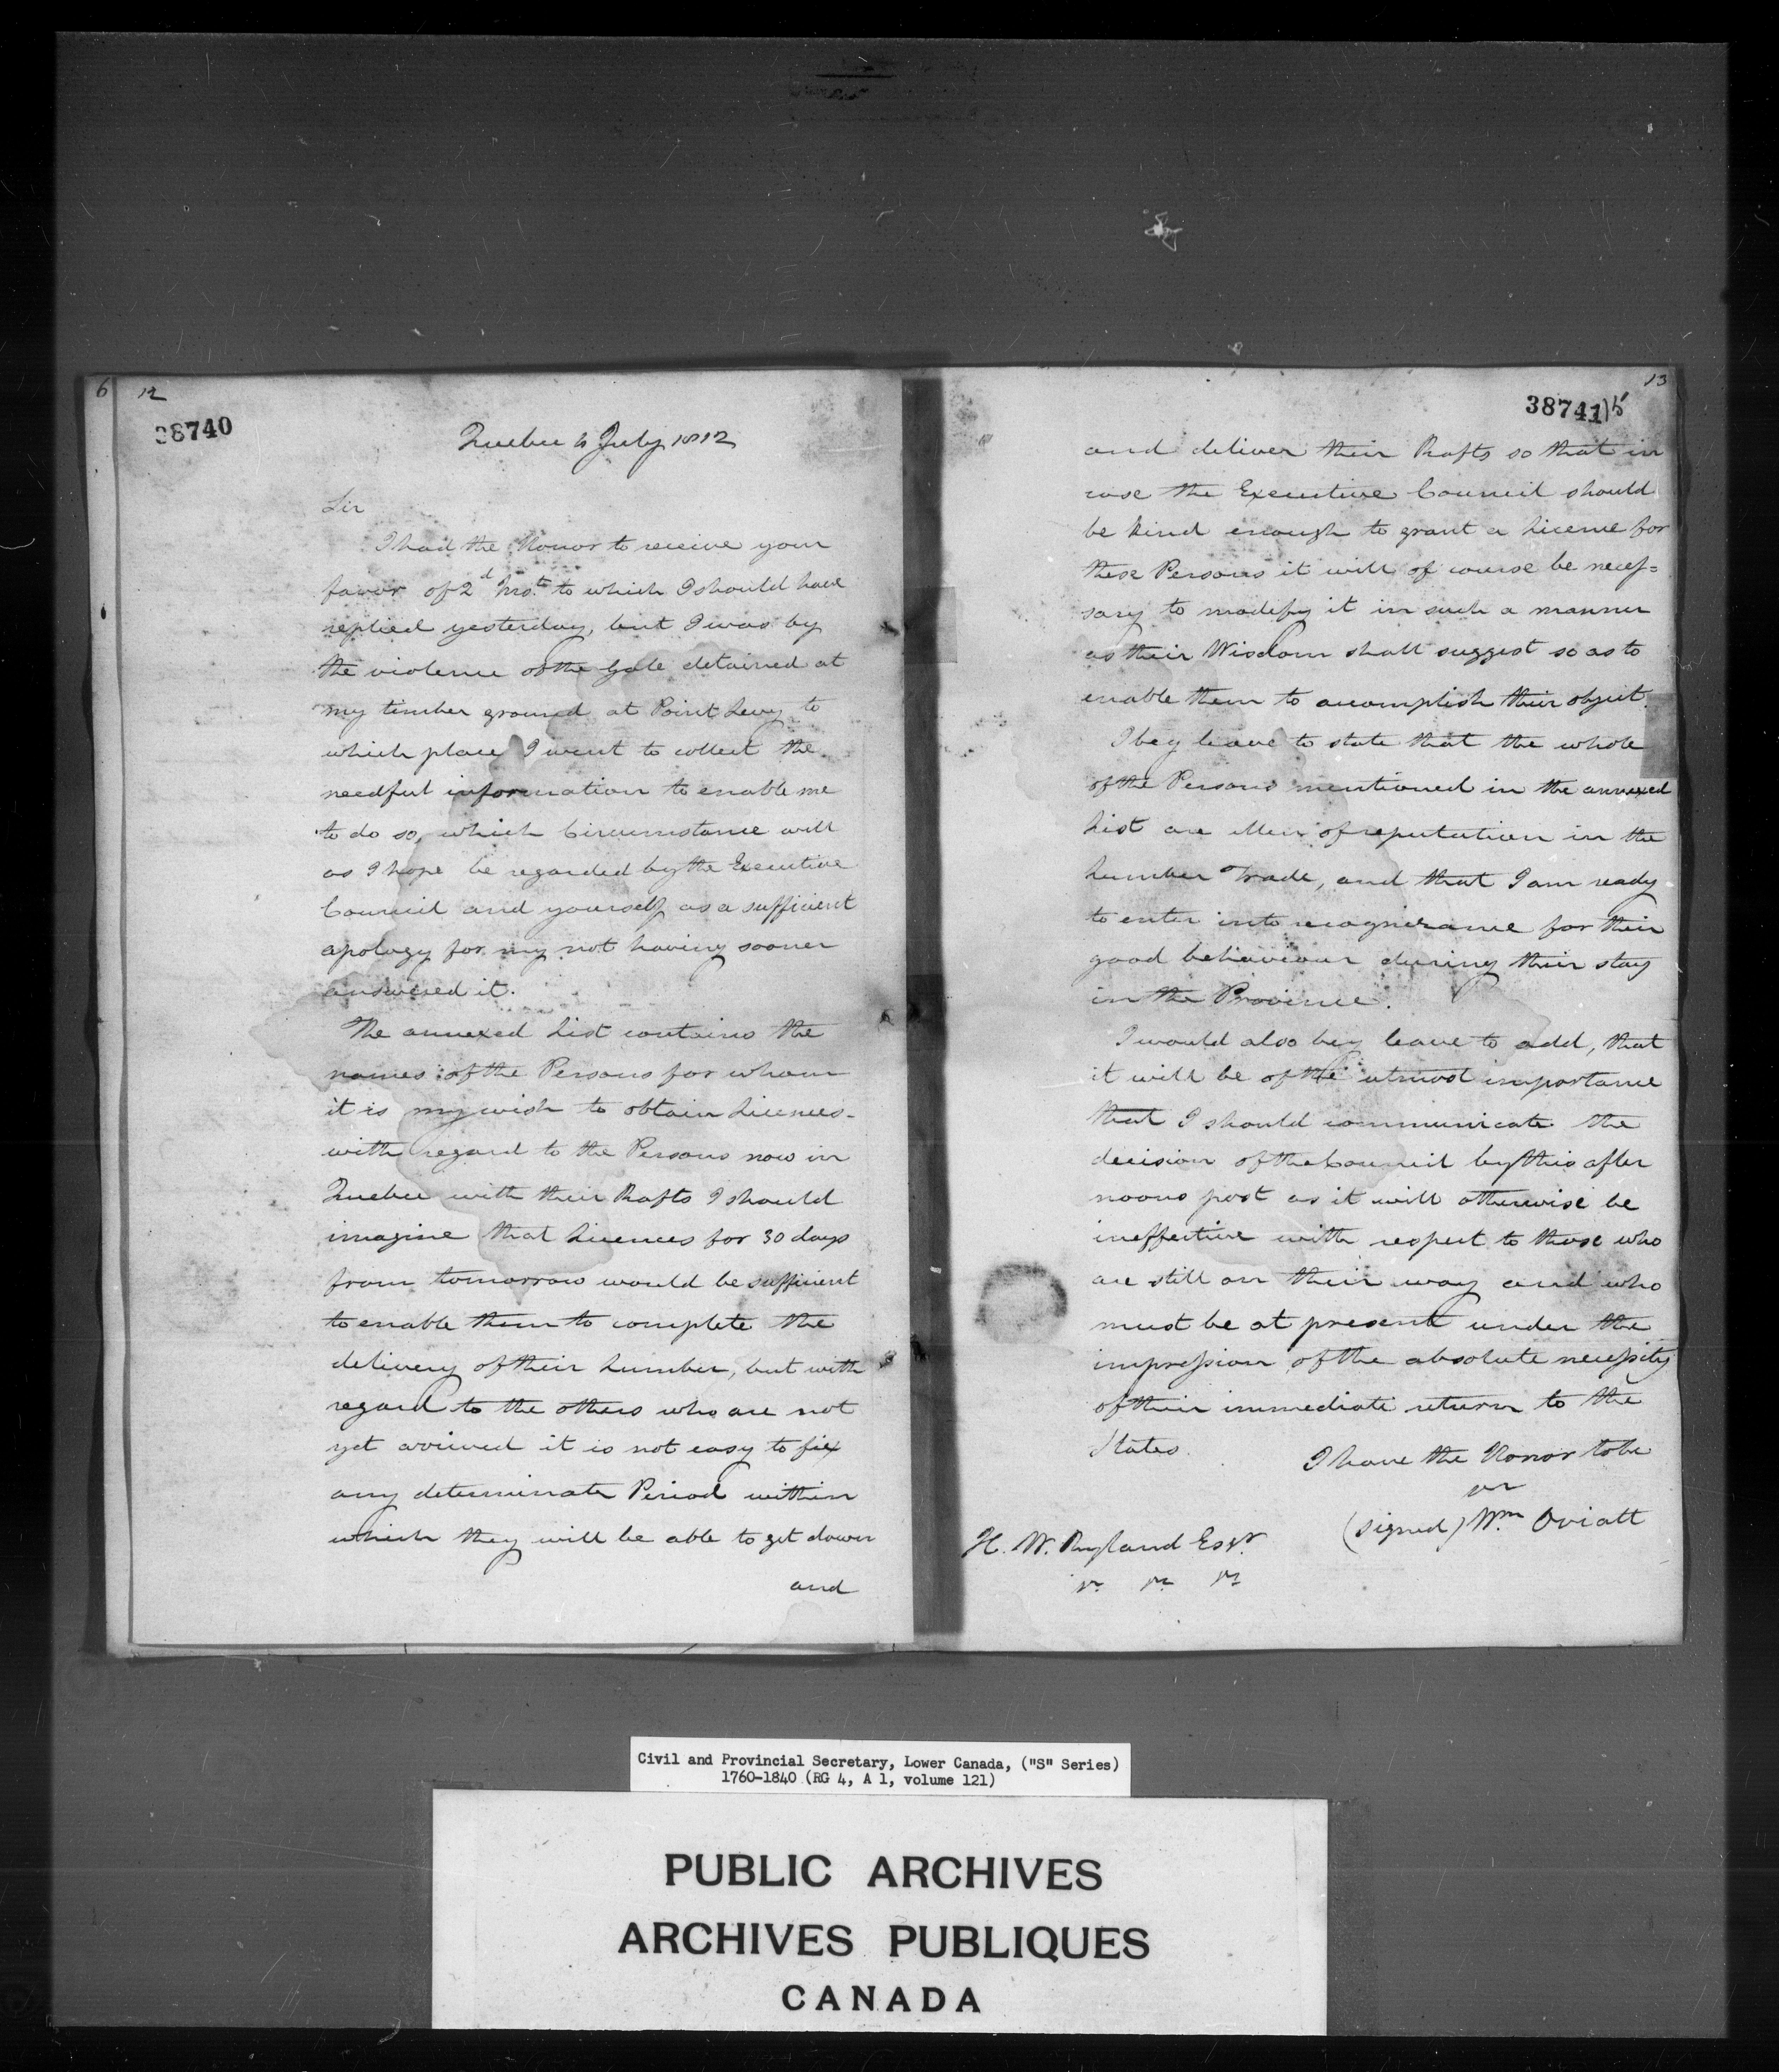 6 12
38740
Quebec 4 July 1812
Sir
I had the Honor to receive your
favor of 2d Inst. to which I should have
replied yesterday, but I was by
the violence of the Gale detained at
my timber ground at Point Levy to
which place I went to collect the
needful information to enable me
to do so, which Circumstance will
as I hope be regarded by the Executive
Council and yourself as a sufficient
apology for my not having sooner
answered it.
The annexed List contains the
names of the Persons for whom
it is my wish to obtain Licences -
with regard to the Persons now in
Quebec with their Rafts I should
imagine that Licences for 30 days
from tomorrow would be sufficient
to enable them to complete the
delivery of their Lumber, but with
regard to the others who are not
yet arrived it is not easy to fix
any determinate Period within
which they will be able to get down
and
13
38741 15
and deliver their Rafts so that in
case the Executive Council should
be kind enough to grant a Licence for
these Persons it will of course be neces=
sary to modify it in such a manner
as their Wisdom shall suggest so as to
enable them to accomplish their object.
I beg leave to state that the whole
of the Persons mentioned in the annexed
List are Men of reputation in the
Lumber Trade, and that I am ready
to enter into recognizance for their
good behaviour during their stay
in the Province.
I would also beg leave to add, that
it will be of the utmost importance
that I should communicate the
decision of the Council by this after
noons post as it will otherwise be
ineffective with respect to those who
are still on their way and who
must be at present under the
impression of the absolute necessity
of their immediate return to the
States.
I have the Honor to be
(signed) Wm Oviatt
H. W. Ryland Esqr.
Civil and Provincial Secretary, Lower Canada, ("S" Series)
1760-1840 (RG 4, A 1, volume 121)
PUBLIC ARCHIVES
ARCHIVES PUBLIQUES
CANADA